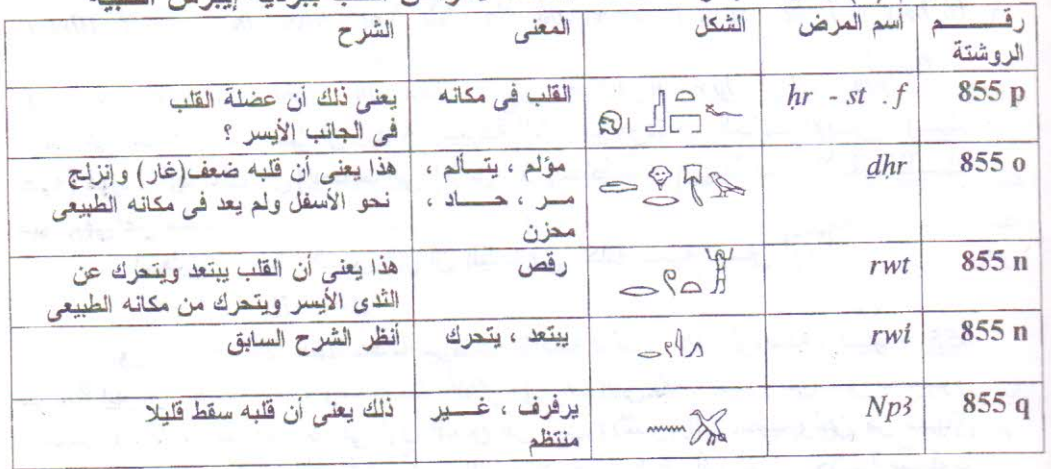 القلب ببردية إيبرس الطبية
رقم الروشتة | أسم المرض | الشكل | المعنى | الشرح
855 p | ḥr - st . f | القلب فى مكانه | يعنى ذلك أن عضلة القلب
فى الجانب الأيسر ؟
855 o | ḏḥr | مؤلم ، يتألم ، | هذا يعنى أن قلبه ضعف(غار) وإنزلج
مر ، حاد ، | نحو الأسفل ولم يعد فى مكانه الطبيعى
محزن
855 n | rwt | رقص | هذا يعنى أن القلب يبتعد ويتحرك عن
الثدى الأيسر ويتحرك من مكانه الطبيعى
855 n | rwi | يبتعد ، يتحرك | أنظر الشرح السابق
855 q | Np3 | يرفرف ، غير | ذلك يعنى أن قلبه سقط قليلا
منتظم